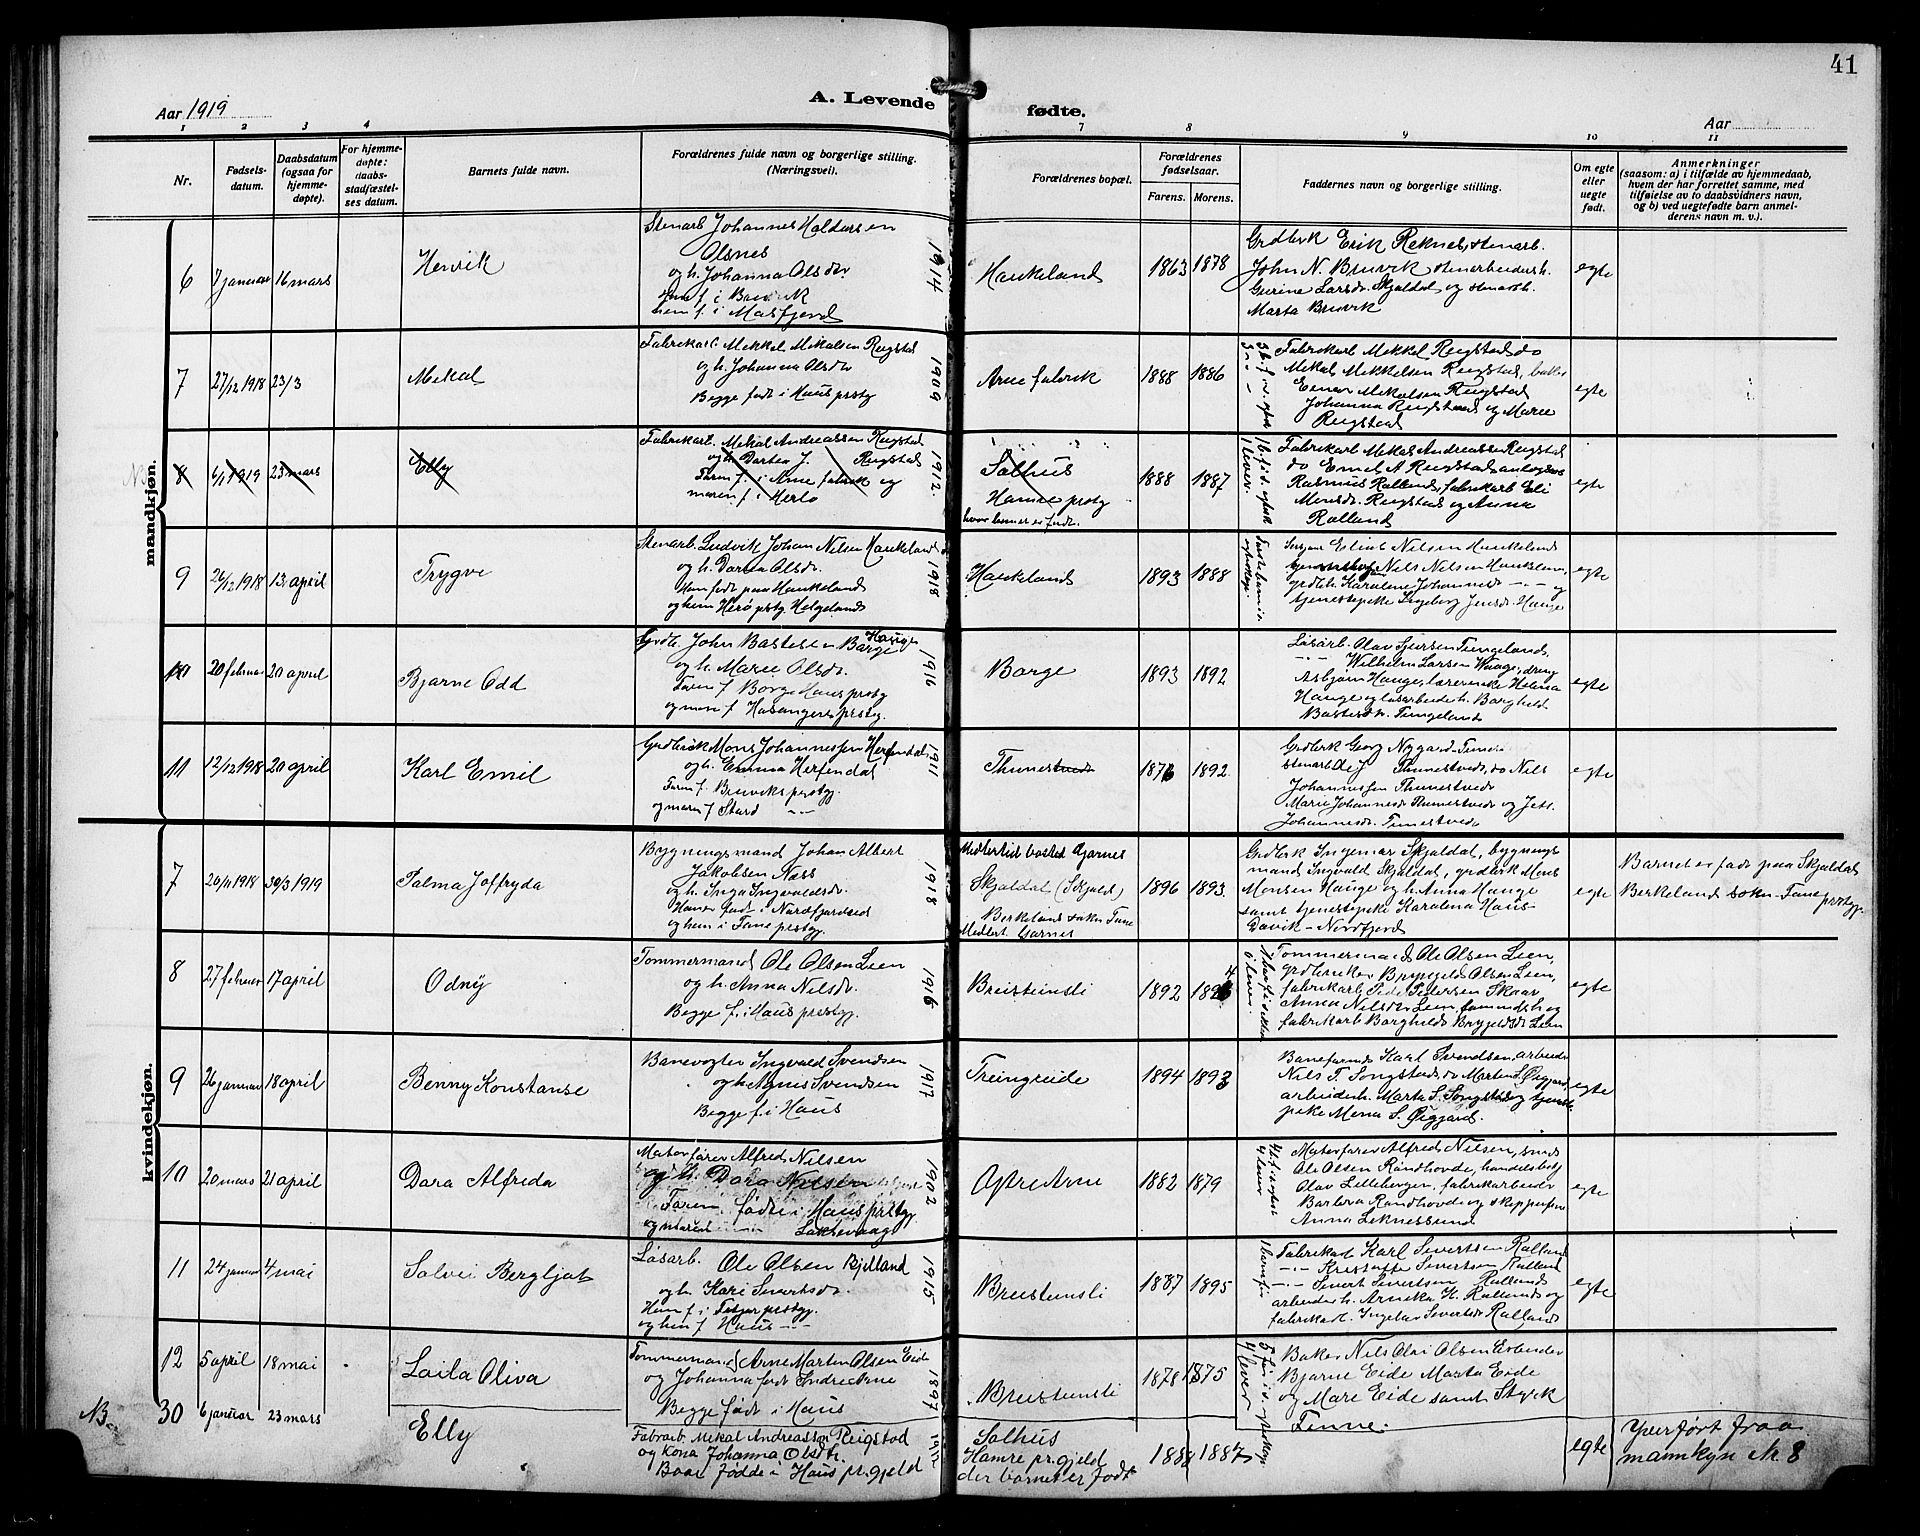 41
Aar 1919
A. Levende
fødte.
Aar
1 2 3 4
7 8 9 10 11
Nr.
Fødsels-
datum.
Daabsdatum
(ogsaa for
hjemme-
døpte).
For hjemme-
døpte:
daabs-
stadfæstel-
ses datum.
Barnets fulde navn.
Forældrenes fulde navn og borgerlige stilling.
(Næringsvei).
Forældrenes bopæl.
Forældrenes
fødselsaar.
Farens. Morens.
Faddernes navn og borgerlige stilling.
Om egte
eller
uegte
født.
Anmerkninger
(saasom: a) i tilfælde av hjemmedaab,
hvem der har forrettet samme, med
tilføielse av to daabsvidners navn,
og b) ved uegtefødte barn anmel-
derens navn m. v.).
mandkjøn.
6 7 januar 16 mars
Henrik
Stenarb Johannes Haldorsen
Olsnes
og h. Johanna Olsdr
f. i Bruvik
f. i Masfjord
1914
Haukeland
1863 1878
Grdbrk Erik Reknes, stenarb.
John N. Bruvik stenarbeidersh.
Gurine Larsdr. Skjaldal og stenarbh.
Marta Bruvik
egte
7 27/12 1918 23/3
Mekal
Fabrikarb. Mekkel Mikalsen Reigstad
og h. Johanna Olsdr
Begge født i Haus prstg
1909
Arne fabrik
1888 1886
Fabrikarb Mekkel Reigstad, do
Mekal Mekkelsen Reigstad, baker
Einar Mekelsen Reigstad
Johanna Reigstad og Marie
Reigstad
egte
8 6/1 1919 23 mars
Elly
Fabrikarb. Mekal Andreassen Reigstad
og h. Dortea J. Reigstad
Faren f. i Arne fabrik og
moren f. i Herlø
1912.
Salhus
Hamre prstg
hvor barnet er født.
1888 1887
Fabrikarb Mekal Andreassen Reigstad
do Emil A Reigstad
Rasmus Rolland, fabrikarb Eli
Monsdr. Reigstad og Anna
Rolland
egte
9 26/12 1918 13 april
Trygve
Stenarb. Ludvik Johan Nilsen Haukeland
og h. Dortea Olsdr.
Han født paa Haukeland
og hun Herø prstg Helgeland
1918
Haukeland
1893 1888
Nilsen Haukeland
Nils Nilsen Haukeland,
grdbh. Karoline Johannesdr - - og
tjenestepike Ingeborg Jensdr. Hauge
egte
10 20 februar 20 april
Bjarne Odd
Grdb. John Bastesen Borge Hauge
og h. Marie Olsdr.
Faren f. Borge Haus prstg
og moren f. Hosanger prstg.
1916
Borge
1893 1892
Løsarb. Olav Sjursen Tungeland,
-"- Wilhelm Larsen Hauge, dreng
Asbjørn Hauge, lærerinde Helena
Hauge og løsarbeiderh. Borghild
Bastesdr. Tungeland
egte
11 12/12 1918 20 april
Karl Emil
Grdbruk Mons Johannessen Herfendal
og h. Emma Herfendal
Faren f. Bruviks prstg.
og moren f. Stord - -
1911
Thunestvedt
1876 1892.
Grdbrk Georg Nygard
stenarb Ole J Thunestvedt, do Nils
Johannessen Thunestvedt
Marie Johannesdr Thunestvedt og Jets
Johannesdr. Tunestvedt
egte
kvindekjøn.
7 20/11 1918 30/3 1919
Palma Joffryda
Bygningsmand Johan Albert
Jakobsen Næss
og h. Inga Ingvaldsdr.
Han er født i Nordfjordeid
og hun i Fane prstg.
1918
Midlertid bosted Garnes
Skjoldal (Skjold)
Berkeland sokn Fane
Midlert. Garnes
1896 1893.
Grdbrk Ingemar Skjoldal, bygnings
mand Ingvald Skjoldal, grdbrk Mons
Monsen Hauge og h. Anna Hauge
samt tjenestepike Karolina Haus-
Davik - Nordfjord
egte
Barnet er født paa Skjoldal
Berkeland sokn Fane prstg.
8 27 februar 17 april
Odny
Tømmermand Ole Olsen Lien
og h. Anna Nilsdr.
Begge f. i Haus prstg.
1916
Breisteinsli
1892 1894
Tømmermand Ole Olsen Lien,
grdbruker Brynjeld Olsen Lien,
fabrikarb. Peder Pedersen Skaar
Anna Nilsdr Lien, tømmdsh og
fabrikarb Borghild Brynjeldsdr Lien
egte
9 26 januar 18 april
Benny Konstanse
Banevogter Ingvald Svendsen
og h. Agnes Svendsen
Begge f. i Haus
1917
Treingreide
1894 1893
Baneformd Karl Svendsen, arbeider
Nils T. Songstad, do Martin S. Øigjord,
arbeiderh. Marta S. Songstad og tjeneste
pike Mena S. Øigjord.
egte
10 20 mars 21 april
Dora Alfreda
Motorfører Alfred Nilsen
og h. Dora Nilsen
Faren født i Haus prstg
og moren - - Laksevaag
1902
Øvre Arne
1882 1879
4 lever
Motorfører Alfred Nilsen, smed
Ole Olsen Randhovde, handelsbetj
Olav Lilleberger, fabrikarbeider
Barbara Randhovde og
Anna Leknessund
egte
11 24 januar 4 mai
Solvei Bergljot
Løsarb. Ole Olsen Bjelland
og h. Kari Sivertsdr.
Han f. i Fitjar prstg.
og hun f. Haus - -
1915
Breisteinsli
1887 1895
Fabrikarb Karl Sivertsen Rolland
-"- Kristoffe Sivertsen Rolland
-"- Sivert Sivertsen Rolland
arbeiderh. Annika H. Rolland og
fabrikarb. Ingebor Sivertsdr Rolland
egte
12 5 april 18 mai
Laila Oliva
Tømmermand Arne Martin Olsen Eide
og Johanna født Indre Arne
Begge født i Haus
1897
Breisteinsli
1878 1875
4 lever
Baker Nils Olai Olsen
Bjarne Eide Marta Eide
og Mare Eide samt Styck
Finne.
NB. 30 6 januar 23 mars
Elly
Fabrarb. Mekal Andreassøn Reigstad
og Kona Johanna Olsdtr.
Baae fødde i Haus pr.gjeld
Salhus
Hamre pr.gjeld
der barnet er født
1888 1887
egte
Yverført fraa
mannkyn Nr. 8